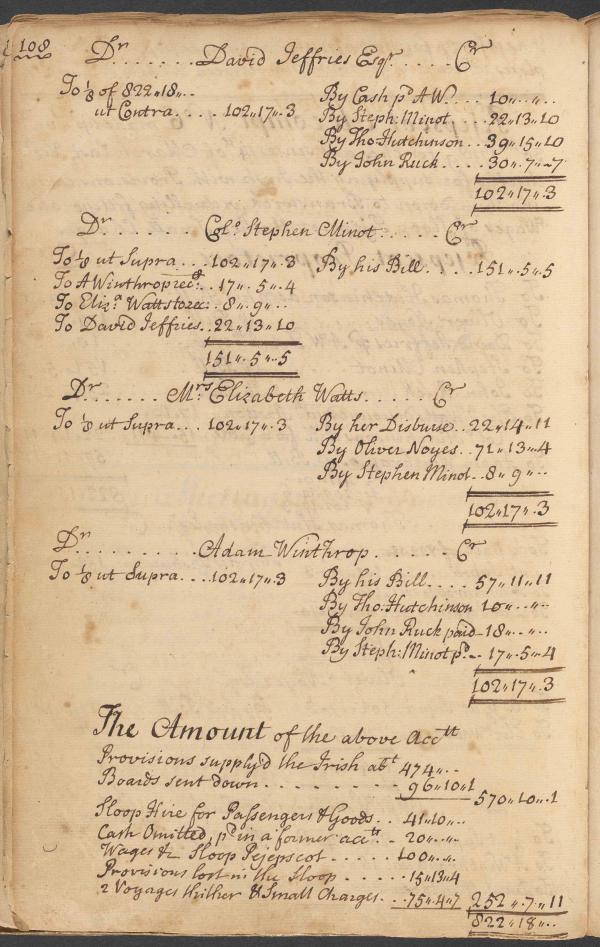 108
Dr ....... David Jeffries Esqr. ..... Cr
To ⅛ of 822„18„..
ut Contra .... 102„17„.3
By Cash pd A W. ... 10„..„..
By Steph: Minot ... 22„13„10
By Tho: Hutchinson ... 39„15„10
By John Ruck .... 30„.7„.7
102„17„.3
Dr ........ Colo. Stephen Minot ...... Cr
To ⅛ ut Supra ... 102„17„.3
To A Winthrop rec: .. 17„.5„.4
To Eliza Watts to rec: .. 8„.9„..
To David Jeffries .. 22„13„10
151„.5„.5
By his Bill .... 151„.5„.5
Dr ....... Mrs Elizabeth Watts ..... Cr
To ⅛ ut Supra ... 102„17„.3
By her Disburse .. 22„14„11
By Oliver Noyes .. 71„13„.4
By Stephen Minot .. 8„.9„..
102„17„.3
Dr ......... Adam Winthrop ....... Cr
To ⅛ ut Supra ... 102„17„.3
By his Bill .... 57„11„11
By Tho: Hutchinson 10„..„..
By John Ruck paid - 18„..„..
By Steph: Minot pd .. 17„.5„.4
102„17„.3
The Amount of the above Acctt
Provisions supply'd the Irish abt 474„..
Boards sent down ......... 96„10„1 570„10„.1
Sloop Hire for Passengers & Goods .. 41„10„..
Cash Omitted, pd in a former acctt .. 20„..„..
Wages &c Sloop Pejepscot ..... 100„..„..
Provisions lost in the Sloop ..... 15„13„4
2 Voyages thither & Small Charges .. 75„.4„7 252„.7„11
822„18„..